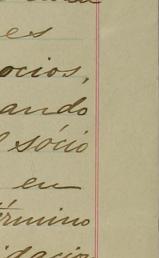 es
ocios,
ando
sócio
en
érmino
idacion